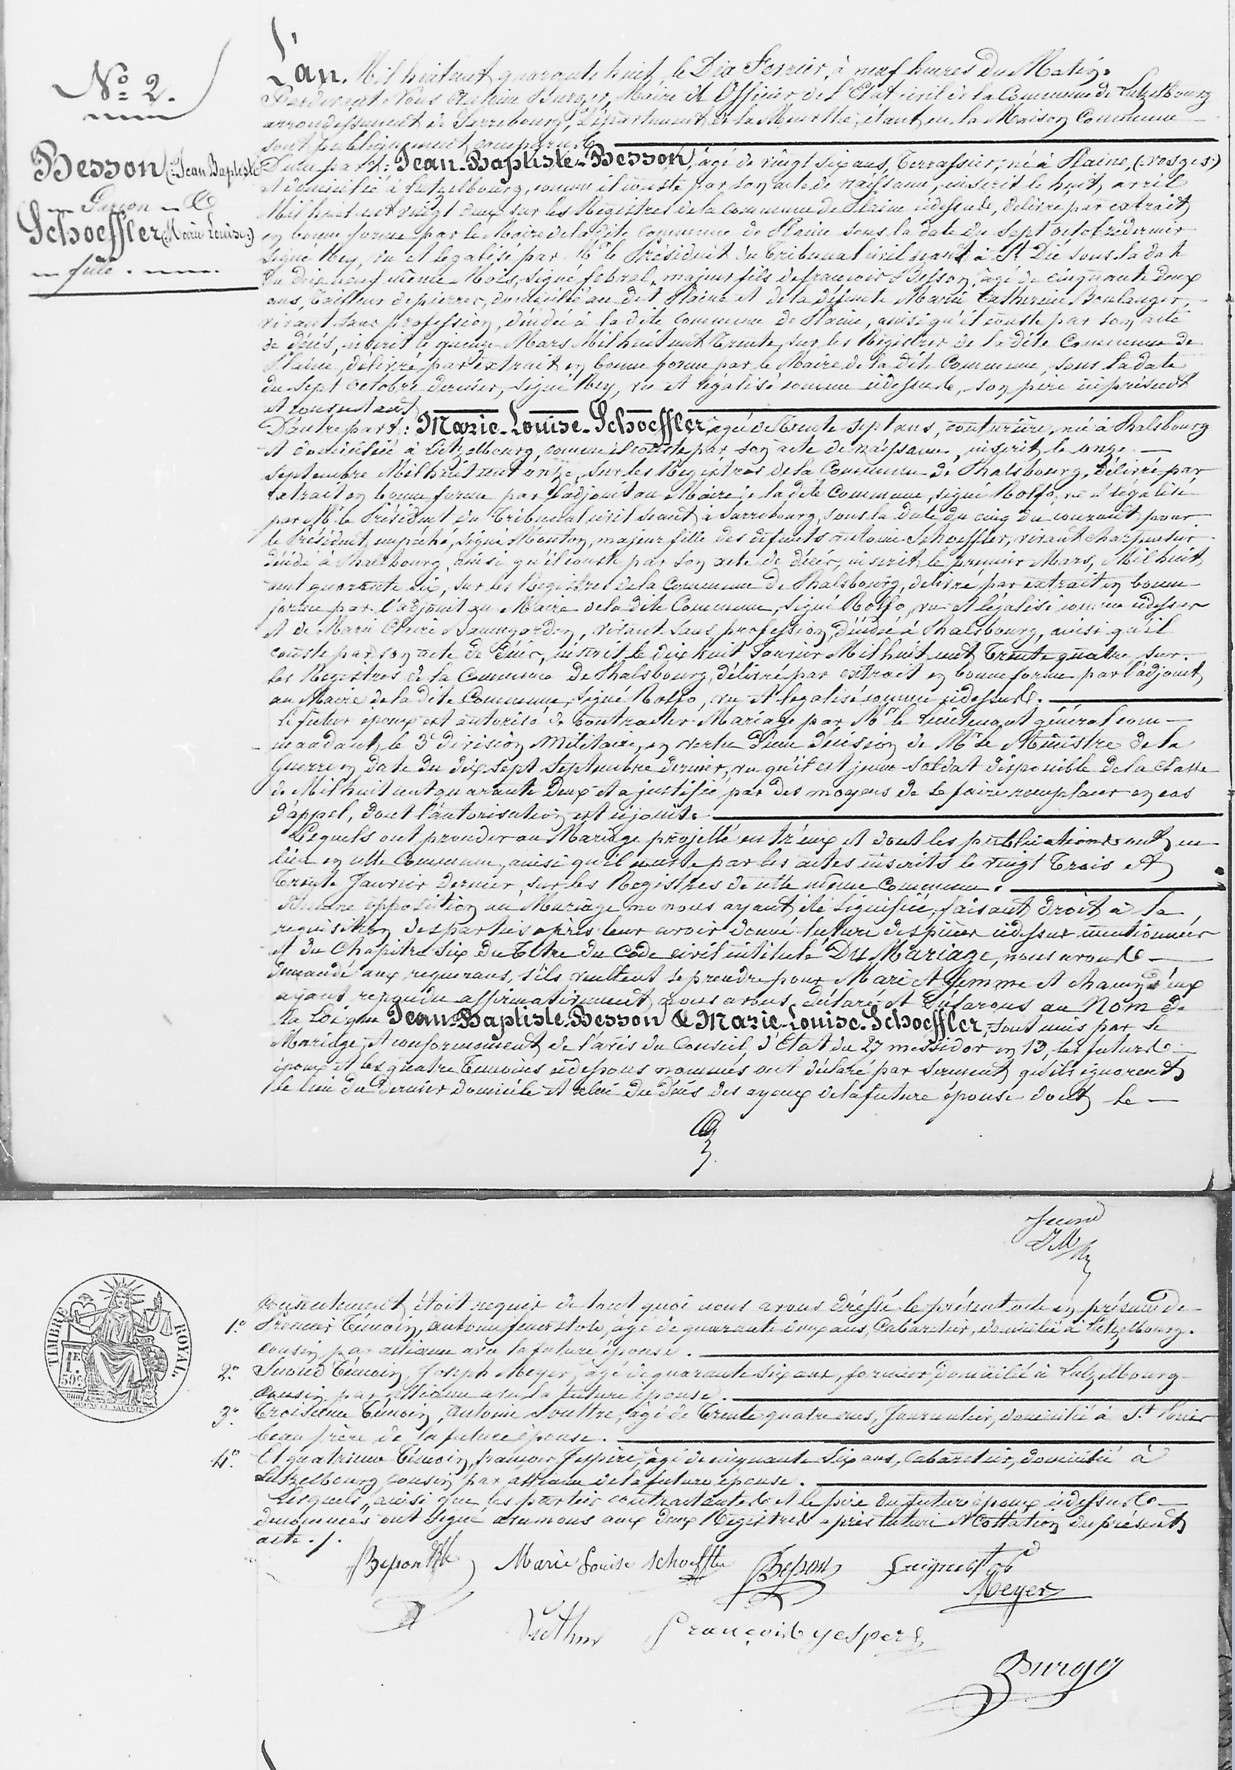 N.o 2.
Besson (Jean Baptiste)
Garçon &
Schoeffler (Marie Louise)
fille.
L'an Mil huit cent quarante huit, le Dix Fevrier, à neuf heures du Matin,
Pardevant Nous Burger, Maire et Officier de l'Etat civil de la Commune de Lutzelbourg
arrondissement de Sarrebourg, département de la Meurthe, étant en la Maison Commune
sont publiquement comparus
D'une part: Jean-Baptiste-Besson, âgé de vingt six ans, Terrassier, né à Plaine, (vosges)
et domicilié à Lutzelbourg, comme il conste par son acte de naissance, inscrit le huit avril
Mil huit cent vingt deux sur les Registres de la commune de Plaine cidessus, délivré par extrait
en bonne forme par le Maire de la dite commune de Plaine sous la date du Sept octobre dernier
signé Rey, vu et légalisé par Mr le Président du Tribunal civil séant à St Dié sous la date
du dix neuf même Mois, signé febvrel, majeur fils de francois Besson, âgé de cinquante deux
ans, tailleur de pierres, domicilié au dit Plaine et de la défunte Marie Catherine Boulanger,
vivant sans profession, décédée à la dite commune de Plaine, ainsi qu'il conste par son acte
de décès, inscrit le quinze Mars Mil huit cent Trente, sur les Registres de la dite Commune de
Plaine, délivré par extrait en bonne forme par le Maire de la dite Commune, sous la date
du sept octobre dernier, signé Rey, vu et légalisé comme cidessus, son père ici présent
et consentant
D'autre part: Marie-Louise-Schoeffler, agée de Trente Sept ans, couturière, née à Phalsbourg
et domiciliée à Lutzelbourg, comme il conste par son acte de naissance, inscrit le onze
septembre Mil huit cent onze, sur les Registres de la Commune de Phalsbourg, délivré par
extrait en bonne forme par l'adjoint au Maire de la dite Commune, signé Rolfo, vu et légalisé
par Mr le Président du Tribunal civil séant à Sarrebourg, sous la date du cinq du courant pour
le Président empêché, signé Mouton, majeure fille des défunts Antoine Schoeffler, vivant charpentier
décédé à Phalsbourg, ainsi qu'il conste par son acte de décès, inscrit le premier Mars, Mil huit
cent quarante six, sur les Registres de la Commune de Phalsbourg, délivré par extrait en bonne
forme par l'adjoint au Maire de la dite Commune, signé Rolfo, vu et légalisé comme cidessus
et de Marie vivant sans profession, décédée à Phalsbourg, ainsi qu'il
conste par son acte de décès, inscrit le dix huit Janvier Mil huit cent Trente quatre sur
les Registres de la Commune de Phalsbourg, délivré par extrait en bonne forme par l'adjoint
au Maire de la dite Commune, signé Rolfo, vu et légalisé comme cidessus.
Le futur époux est autorisé de contracter Mariage par Mr le lieutenant général com-
mandant la 3e division Militaire, en vertu d'une décision de Mr le Ministre de la
Guerre en date du dix sept Septembre dernier, vu qu'il est jeune soldat disponible de la classe
de Mil huit cent quarante deux et a justifié par des moyens de se faire remplacer en cas
d'appel, dont l'autorisation est cijointe
Lesquels ont procéder au Mariage projetté entr'eux et dont les publications ont eu
lieu en cette Commune, ainsi qu'il conste par les actes inscrits le vingt Trois et
Trente Janvier dernier, sur les Registres de cette même Commune.
Aucune opposition au Mariage ne nous ayant été signifiée, faisant droit à la
requisition des parties après leur avoir donné lecture des pièces cidessus mentionnées
et du Chapitre Six du Titre du Code civil intitulé Du Mariage, nous avons
demandé aux requerans, s'ils veullent se prendre pour Mari et femme et chacun d'eux
ayant repondu affirmativement, nous avons déclaré et Déclarons au Nom de
la Loi que Jean-Baptiste-Besson & Marie-Louise-Schoeffler, Sont unis par le
Mariage, et conformement de l'avis du Conseil, d'Etat du 27 messidor an 13, les futurs
époux et les quatre temoins cidessous nommés ont déclaré par serment qu'ils ignorent
le lieu du dernier domicile et celui du décès des ayeux de la future épouse dont le
TIMBRE ROYAL
consentement étoit requis de tout quoi nous avons dréssé le présent acte en présence de
1.o Premier Témoin, Antoine agé de quarante deux ans, Cabaretier, domicilié à Lutzelbourg.
cousin par alliance avec la future épouse.
2.o Second Témoin, Joseph Meyer, âgé de quarante Six ans, fermier domicilié à Lutzelbourg
Cousin par alliance avec la future épouse.
3.o Troisième Témoin, Antoine agé de Trente quatre ans, Journalier, domicilié à St
beau frère de la future épouse.
4.o Et quatrième Témoin, françois Jespere, âgé de cinquante Six ans, Cabaretier, domicilié à
Lutzelbourg, cousin par alliance de la future épouse.
Lesquels, ainsi que les parties contractantes et le père du futur époux cidessus
denommés ont signé avec nous aux deux Registres après lecture et Collation du présent
acte./.
Besson Marie Louise Schoeffler Besson
Meyer
François yesper
Burger